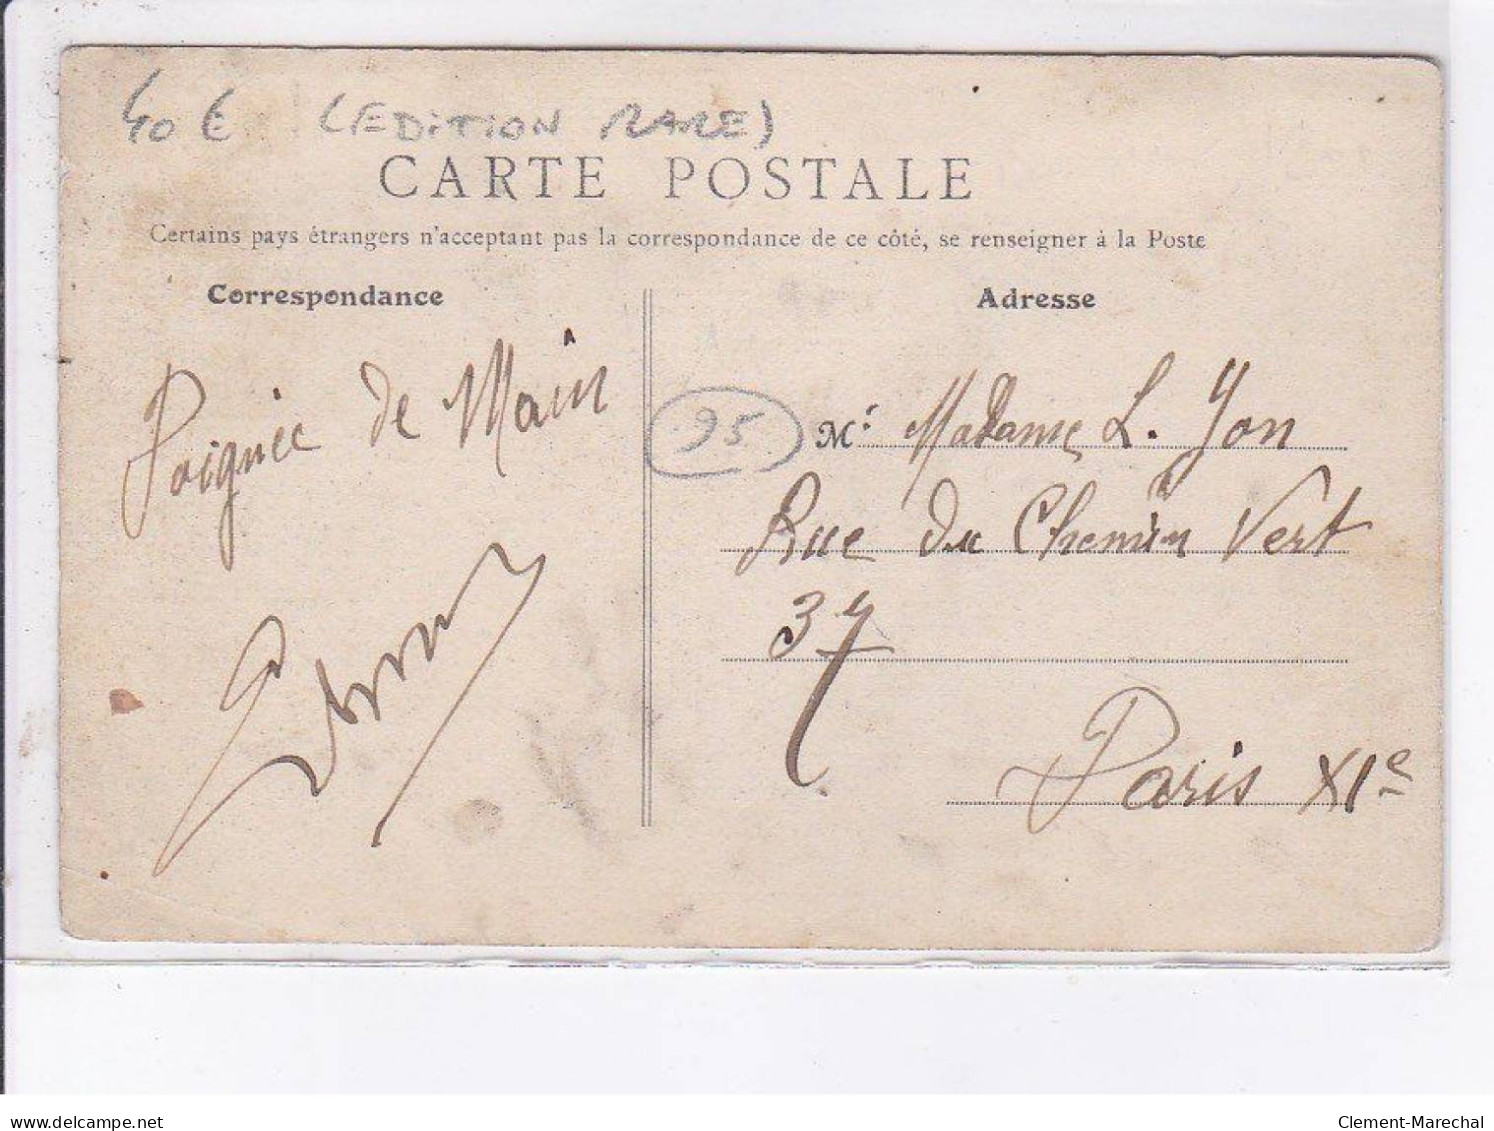 40 € (EDITION RARE)
CARTE POSTALE
Certains pays étrangers n'acceptant pas la correspondance de ce côté, se renseigner à la Poste
Correspondance
Poignée de Main
95
Adresse
M. Madame L. Yon
Rue du Chemin Vert
37
Paris XIe
delcampe.net
Clement-Marechal